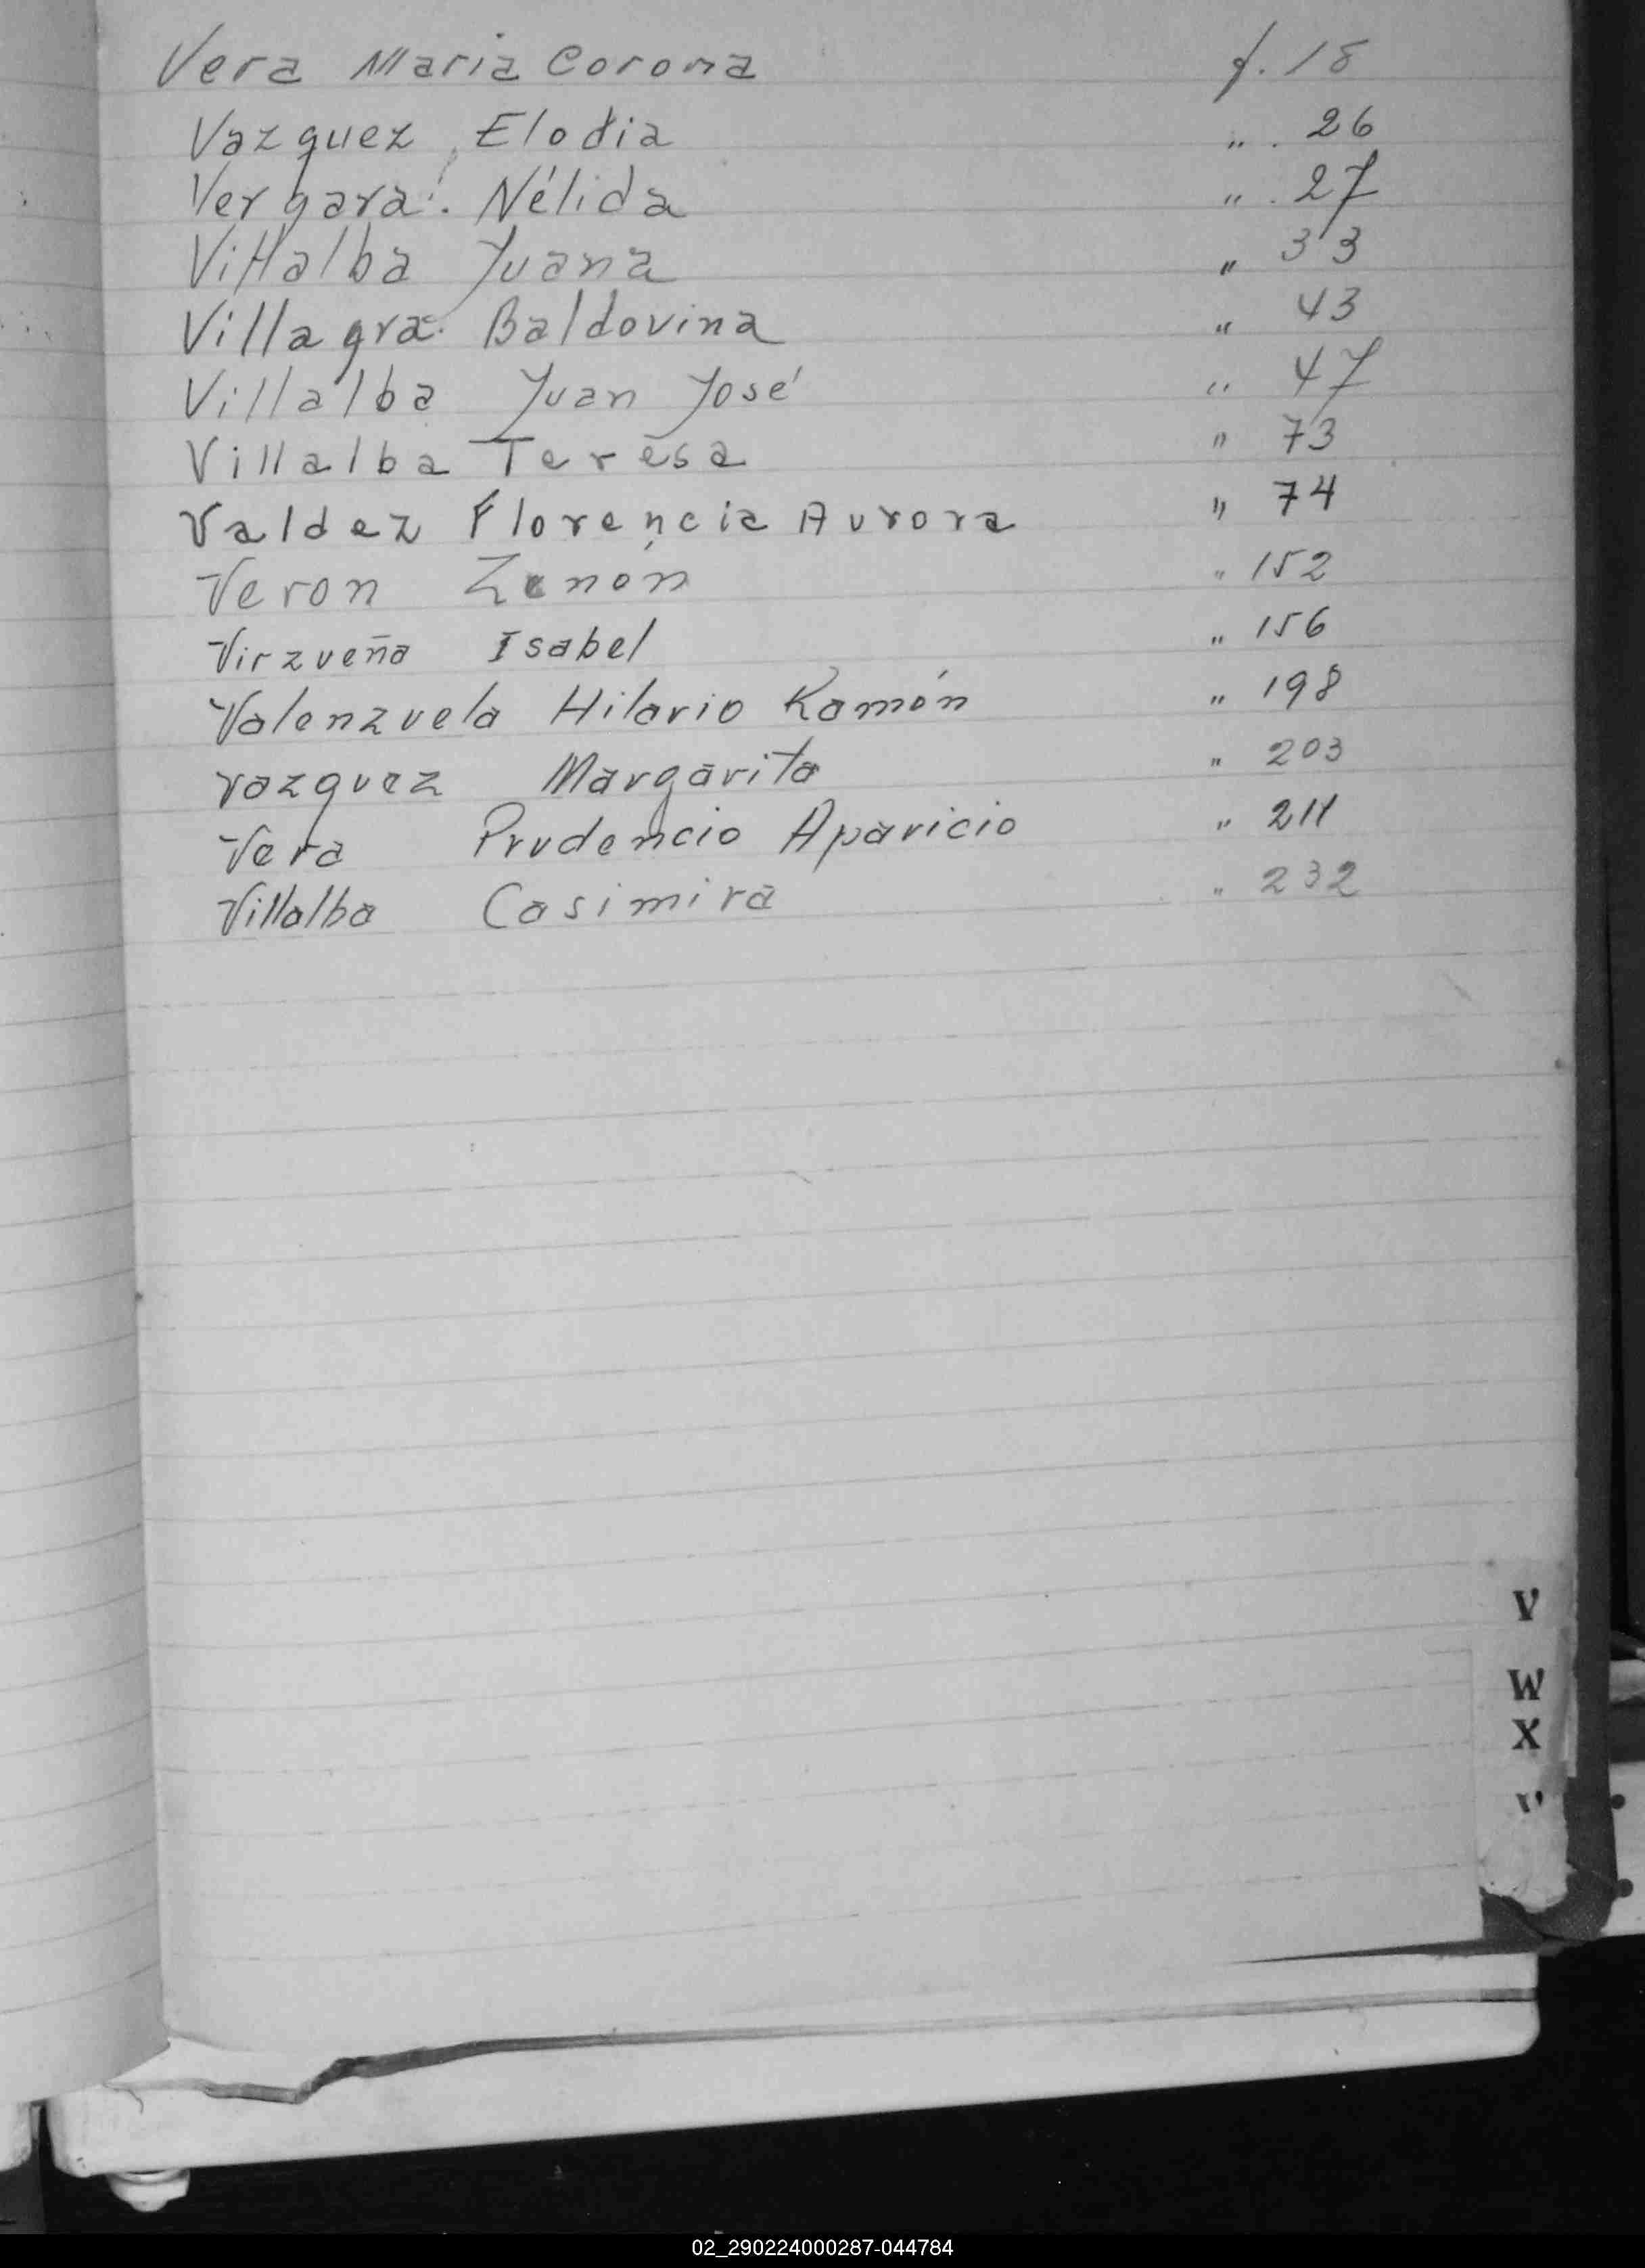 Vera Maria Corona f. 18
Vazquez, Elodia " . 26
Vergara. Nélida " . 27
Villalba Juana " 33
Villagra. Baldovina " 43
Villalba Juan José " 47
Villalba Teresa " 73
Valdez Florencia Aurora " 74
Veron Zenón " 152
Virzueña Isabel " 156
Valenzuela Hilario Ramón " 198
Vazquez Margarita " 203
Vera Prudencio Aparicio " 211
Villalba Casimira " 232
V
W
X
02_290224000287-044784